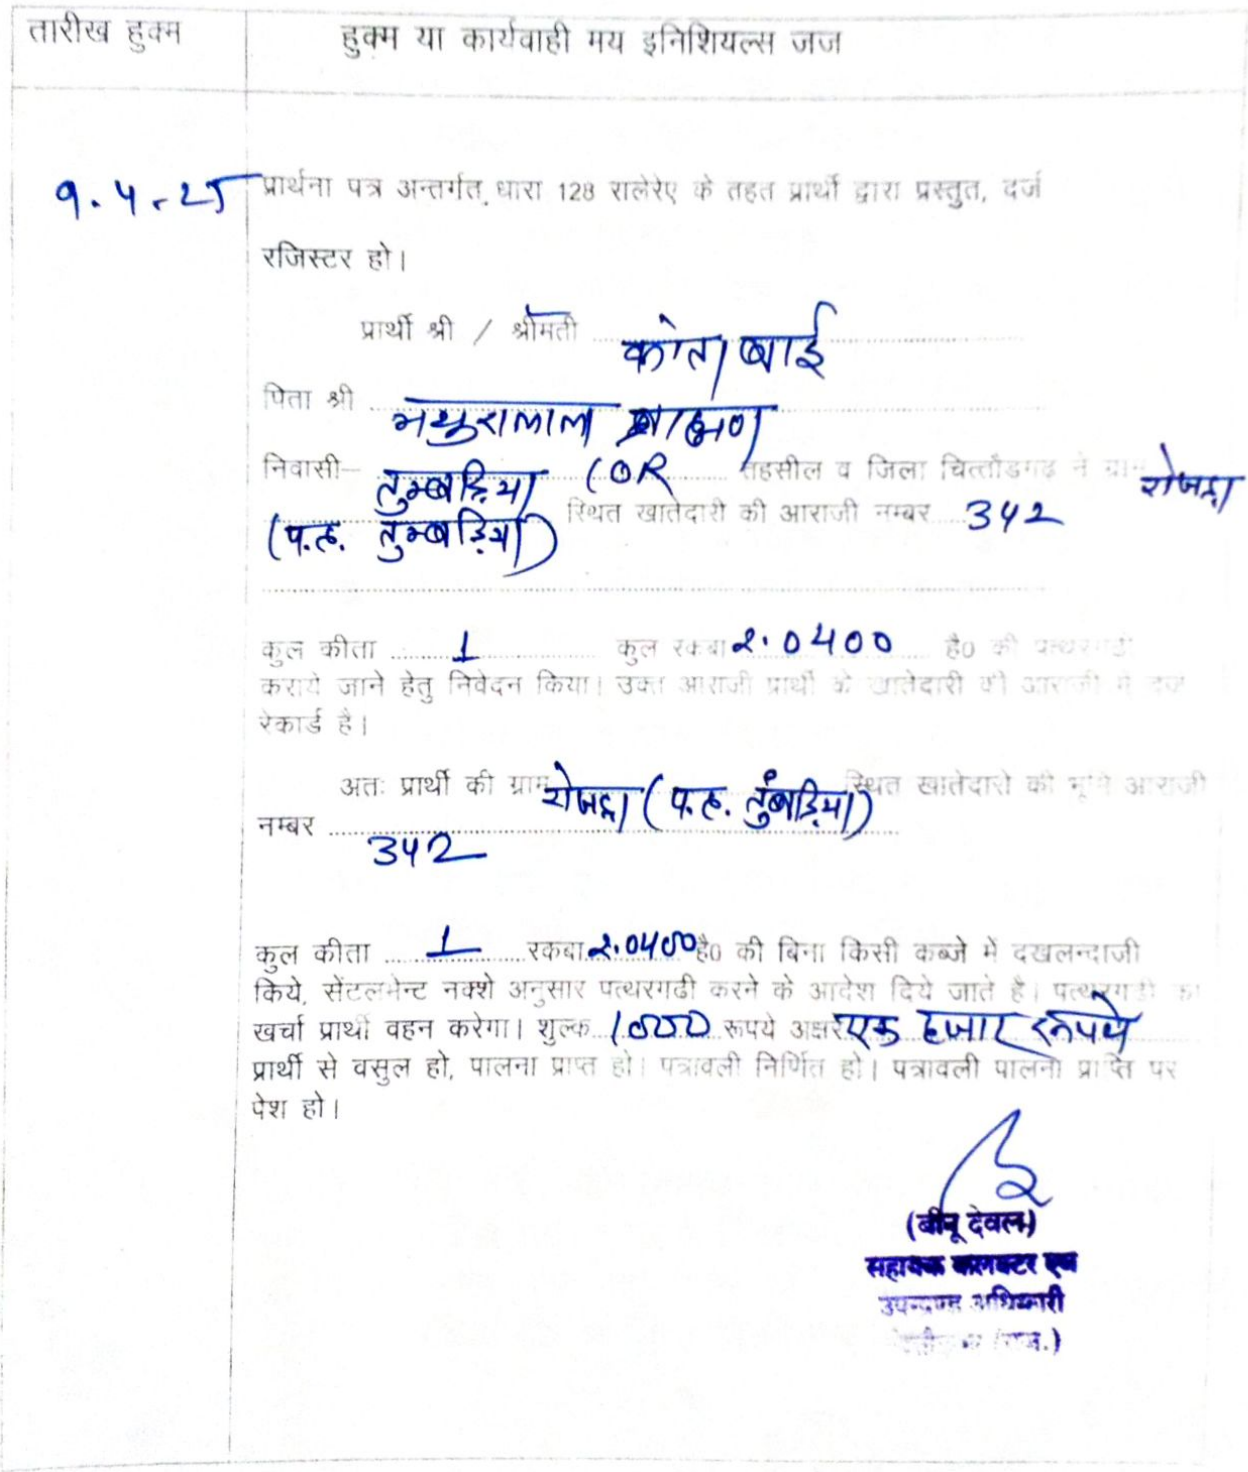 तारीख हुक्म
हुक्म या कार्यवाही मय इनिशियल्स जज
9.4.25
प्रार्थना पत्र अन्तर्गत धारा 128 रालेरेए के तहत प्रार्थी द्वारा प्रस्तुत, दर्ज
रजिस्टर हो।
प्रार्थी श्री / श्रीमती कांता बाई
पिता श्री मथुरालाल ब्राह्मण
निवासी– तुम्बड़िया (OR तहसील व जिला चित्तौडगढ ने ग्राम
(प.ह. तुम्बड़िया) स्थित खातेदारी की आराजी नम्बर 342
कुल कीता 1 कुल रकबा 2.0400 है0 की पत्थरगढी
कराये जाने हेतु निवेदन किया। उक्त आराजी प्रार्थी के खातेदारी की आराजी में दर्ज
रेकार्ड है।
अतः प्रार्थी की ग्राम (प.ह. तुंबड़िया) स्थित खातेदारी की भूमि आराजी
नम्बर 342
कुल कीता 1 रकबा 2.0400 है0 की बिना किसी कब्जे में दखलन्दाजी
किये, सेंटलमेन्ट नक्शे अनुसार पत्थरगढी करने के आदेश दिये जाते है। पत्थरगढी का
खर्चा प्रार्थी वहन करेगा। शुल्क 1000 रूपये अक्षरे एक हजार रूपये
प्रार्थी से वसुल हो, पालना प्राप्त हो। पत्रावली निर्णित हो। पत्रावली पालना प्राप्ति पर
पेश हो।
(बीनू देवल)
सहायक कलक्टर एवं
उपखण्ड अधिकारी
(राज.)